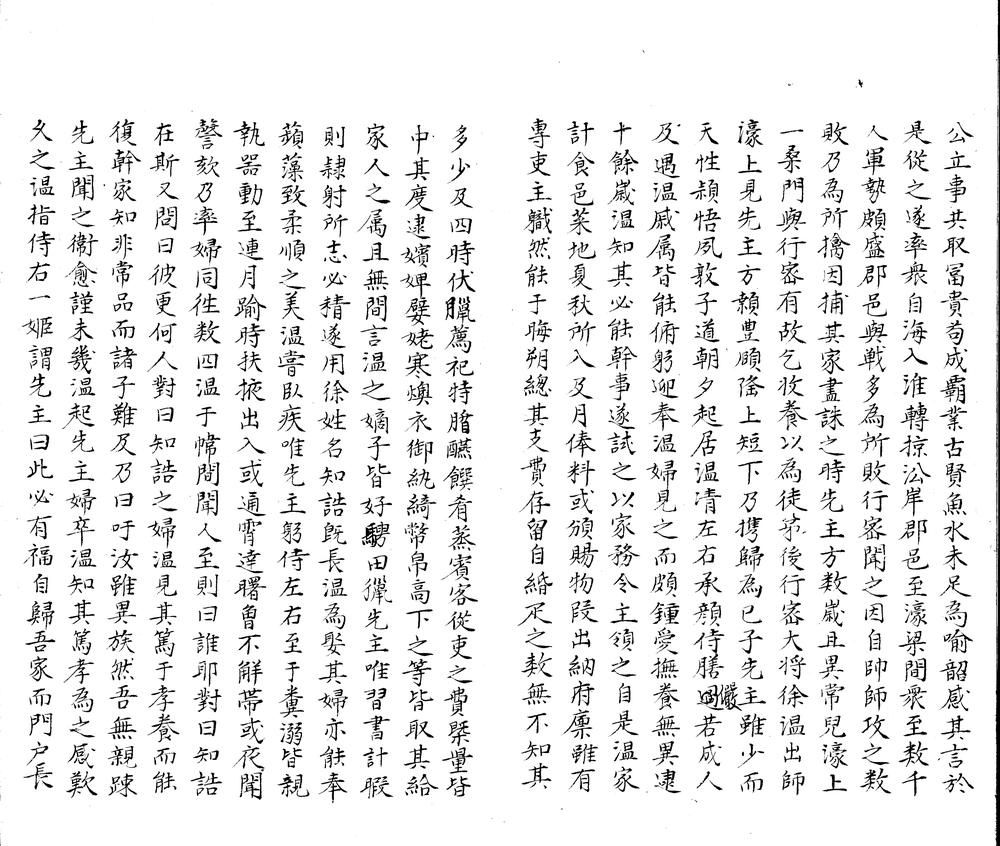 公立事共取冨貴苟成霸業古賢魚水未足為喻韶感其言於
是從之遂率衆自海入淮轉掠㳂岸郡邑至濠梁間衆至数千
人軍勢頗盛郡邑與戰多為所敗行宻聞之因自帥師攻之数
敗乃為所擒因捕其家盡誅之時先主方数嵗且異常兒濠上
一桑門與行宻有故乞收養以為徒弟後行宻大将徐温出師
濠上見先主方顙豊頤隆上短下乃携歸為已子先主雖少而
天性頴悟夙敦子道朝夕起居温凊左右承顔侍膳儼若成人
及遇温戚属皆能俯躬迎奉温婦見之而頗鍾愛撫養無異逮
十餘嵗温知其必能幹事遂試之以家務令主領之自是温家
計食邑菜地夏秋所入及月俸料或頒賜物叚出納府廩雖有
專吏主軄然能于晦朔總其支費存留自緡疋之数無不知其
多少及四時伏臘薦祀特腯醼饌肴蒸賓客從吏之費槩量皆
中其度逮嬪婢嬖姥寒燠衣御紈綺幣帛高下之等皆取其給
家人之属且無間言温之嫡子皆好騁田獵先主唯習書計暇
則隸射所志必精遂用徐姓名知誥旣長温為娶其婦亦能奉
蘋藻致柔順之美温嘗臥疾唯先主躬侍左右至于糞溺皆親
執器動至連月踰時扶掖出入或通宵達曙曾不解帶或夜聞
謦欬乃率婦同徃数四温于幃間聞人至則曰誰耶對曰知誥
在斯又問曰彼更何人對曰知誥之婦温見其篤于孝養而能
復幹家知非常品而諸子難及乃曰吁汝雖異族然吾無親踈
先主聞之衛愈謹未幾温起先主婦卒温知其篤孝為之感歎
乆之温指侍右一姬謂先主曰此必有福自歸吾家而門户長